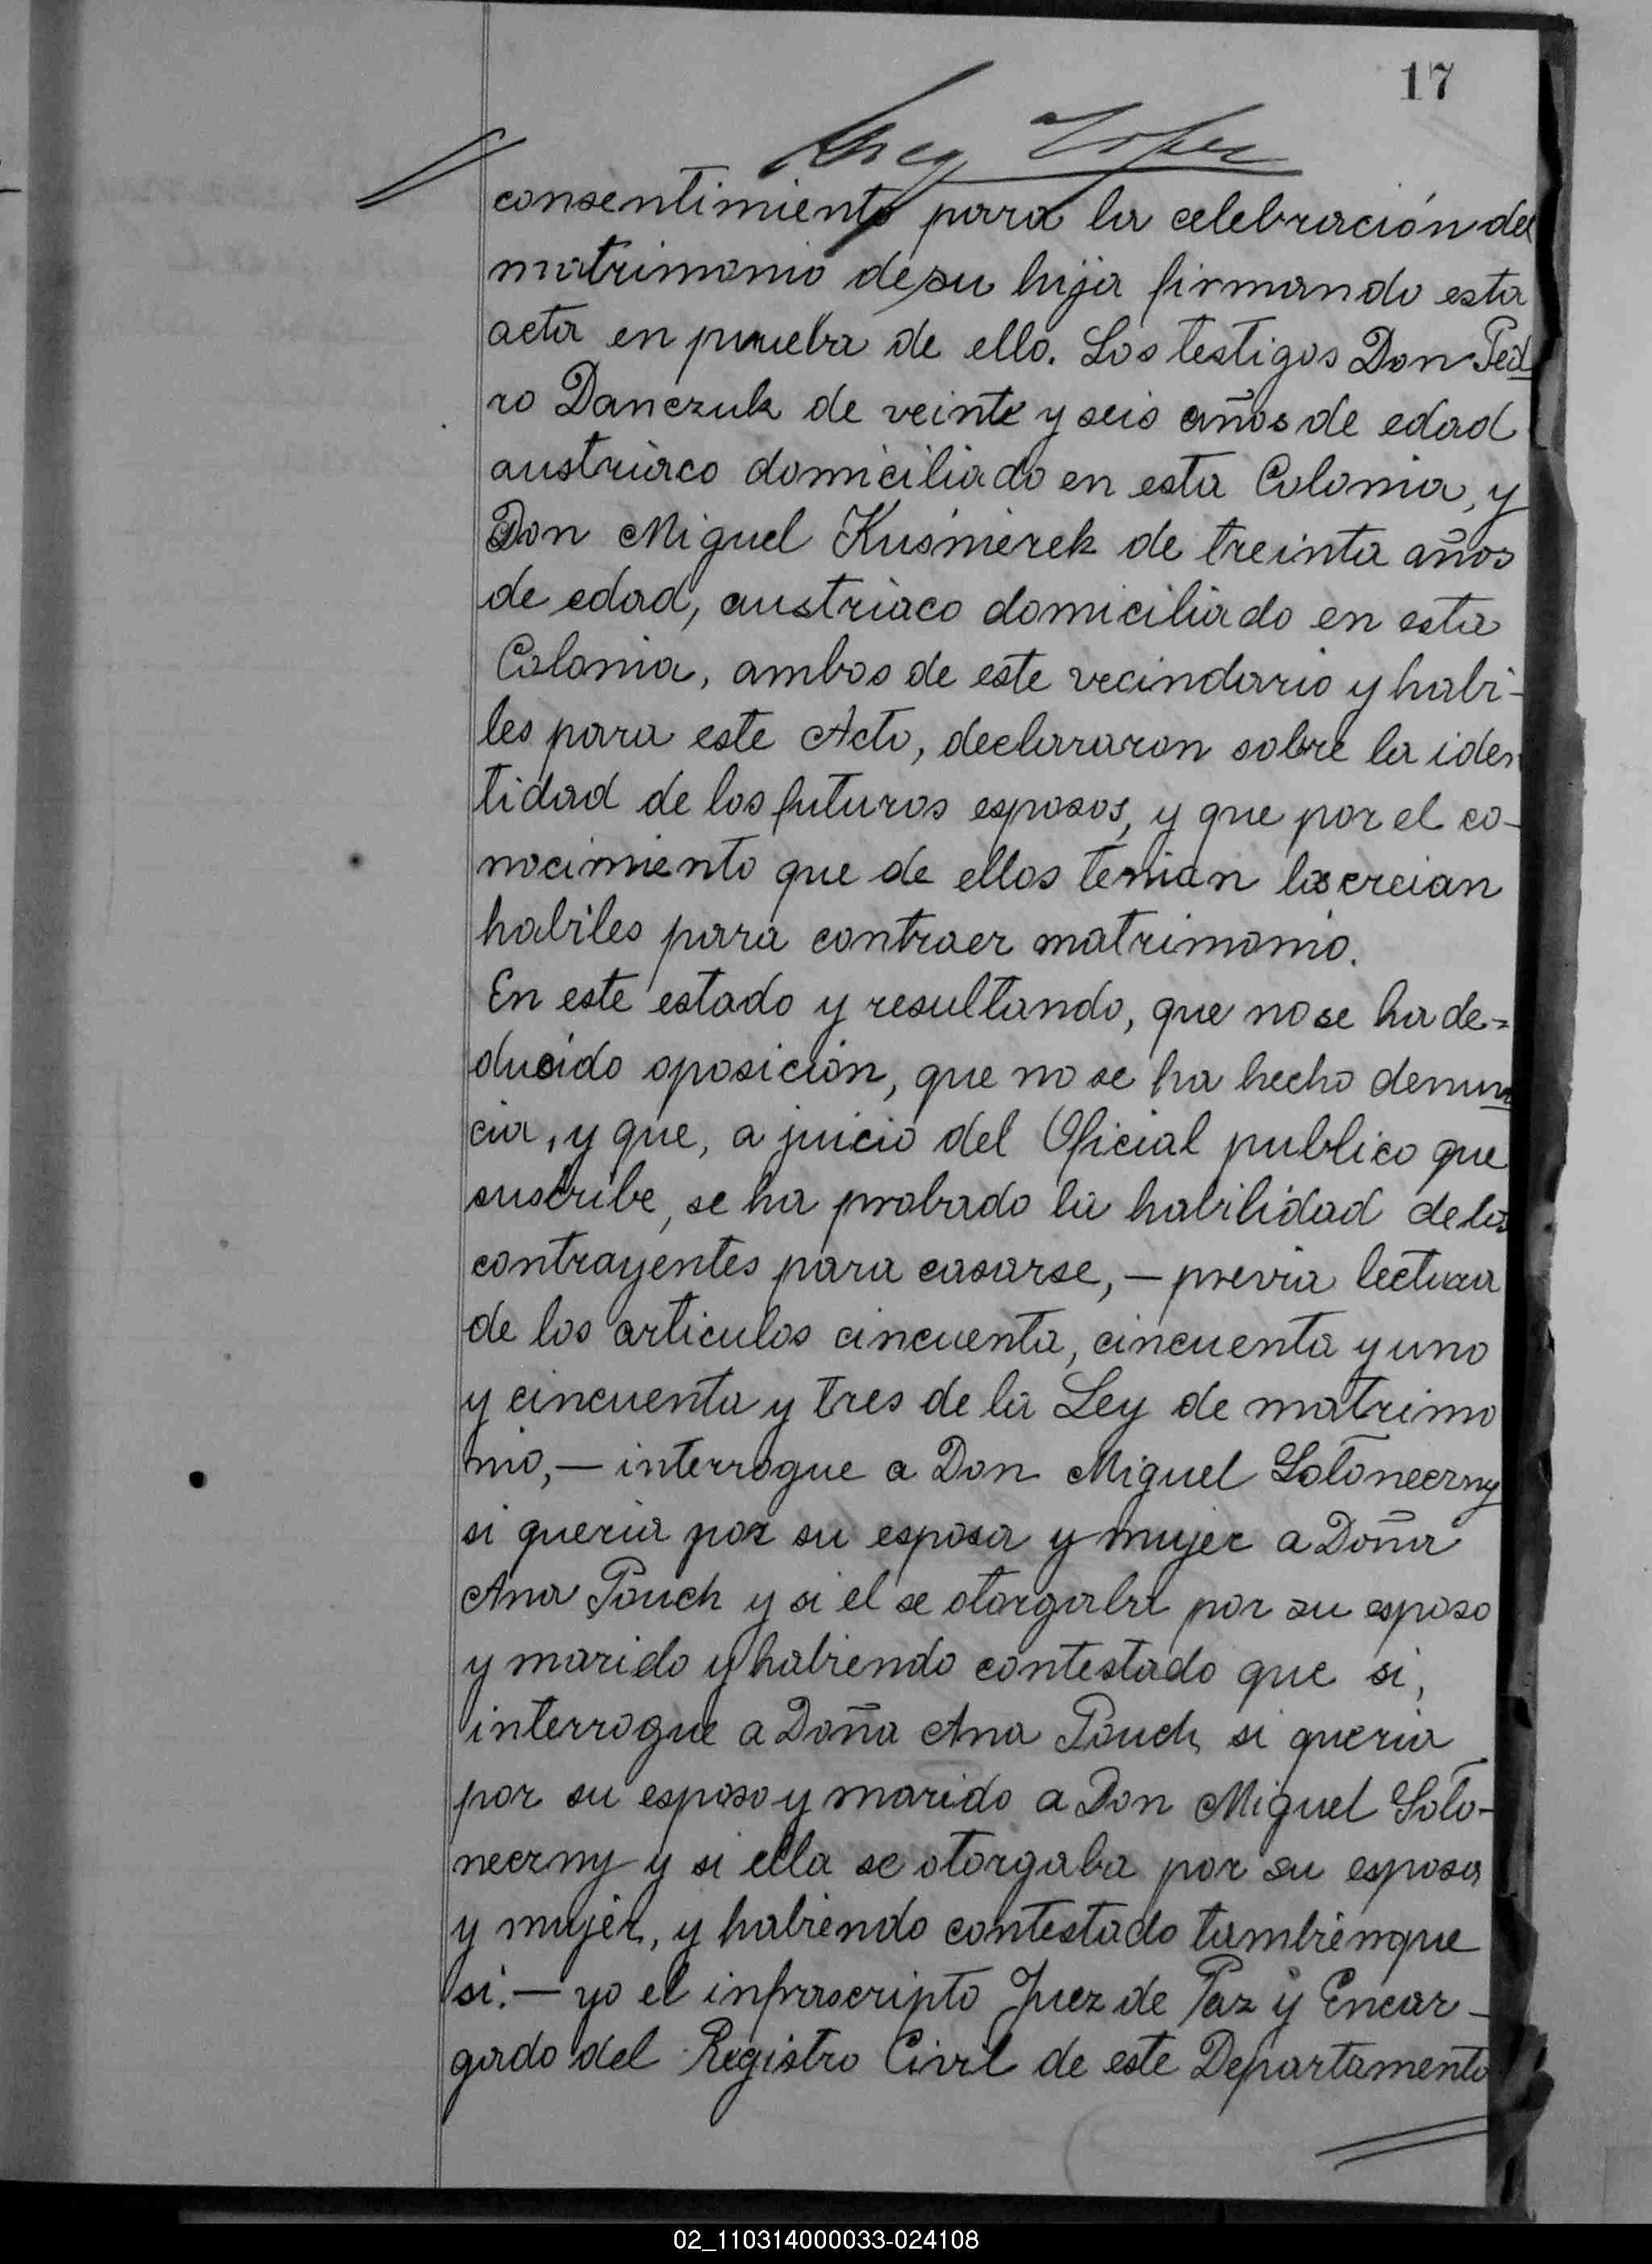 17
consentimiento para la celebración del
matrimonio de su hija firmando esta
acta en prueba de ello. Los testigos Don Ped
ro Danczuk de veinte y seis años de edad
austriaco domiciliado en esta Colonia, y
Don Miguel Kusmierek de treinta años
de edad, austriaco domiciliado en esta
Colonia, ambos de este vecindario y habi-
les para este Acto, declararon sobre la iden
tidad de los futuros esposos, y que por el co-
nocimiento que de ellos tenian los creian
habiles para contraer matrimonio.
En este estado y resultando, que no se ha de=
ducido oposición, que no se ha hecho denun
cia, y que, a juicio del Oficial publico que
suscribe, se ha probado la habilidad de los
contrayentes para casarse, — previa lectura
de los articulos cincuenta, cincuenta y uno
y cincuenta y tres de la Ley de matrimo
nio, — interrogue a Don Miguel Solonecrny
si queria por su esposa y mujer a Doña
Ana Pauch y si el se otorgaba por su esposo
y marido y habiendo contestado que si,
interrogue a Doña Ana Pauch si queria
por su esposo y marido a Don Miguel Solo-
necrny y si ella se otorgaba por su esposa
y mujer, y habiendo contestado tambien que
si. — yo el infrascripto Juez de Paz y Encar-
gado del Registro Civil de este Departamento
02_110314000033-024108